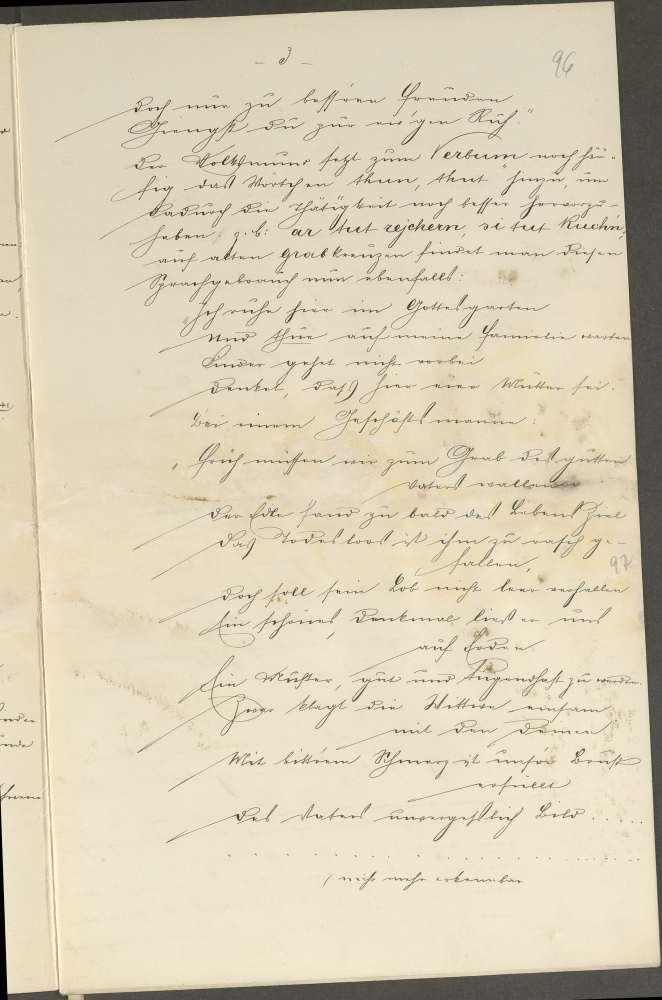 - 3 -
96
Doch nur zu bess'ren Freuden
Giengst du zur ew'gen Ruh."
Der Volksmund setzt zum Verbum noch häu-
fig das Wörtchen thun, thut hinzu, um
dadurch die Thätigkeit noch besser hervorzu-
heben, z. B: ar tut rejchern, si tut Kuch'n;
auf alten Grabkreuzen findet man diesen
Sprachgebrauch nun ebenfalls:
"Ich ruhe hier im Gottesgarten
Und thue auf meine Familie warten
Kinder gehet nicht vorbei
Denket, daß hier eure Mutter sei.
Bei einem Geschäftsmanne:
"Früh müssen wir zum Grab des guten
Vaters wallen
Der Edle fand zu bald des Lebens Ziel
Das Todesloos ist ihm zu rasch ge-
fallen,
97
Doch soll sein Lob nicht leer verhallen
Ein schönes Denkmal ließ er uns
auf Erden
Ein Muster, gut und tugendhaft zu werden.
Zwar klagt die Wittwe einsam
mit den
Mit bittrem Schmerz ist unsre Brust
erfüllt
Des Vaters unvergeßlich Bild .....
. . . . . . . . . . . . . . .
(nicht mehr erkennbar